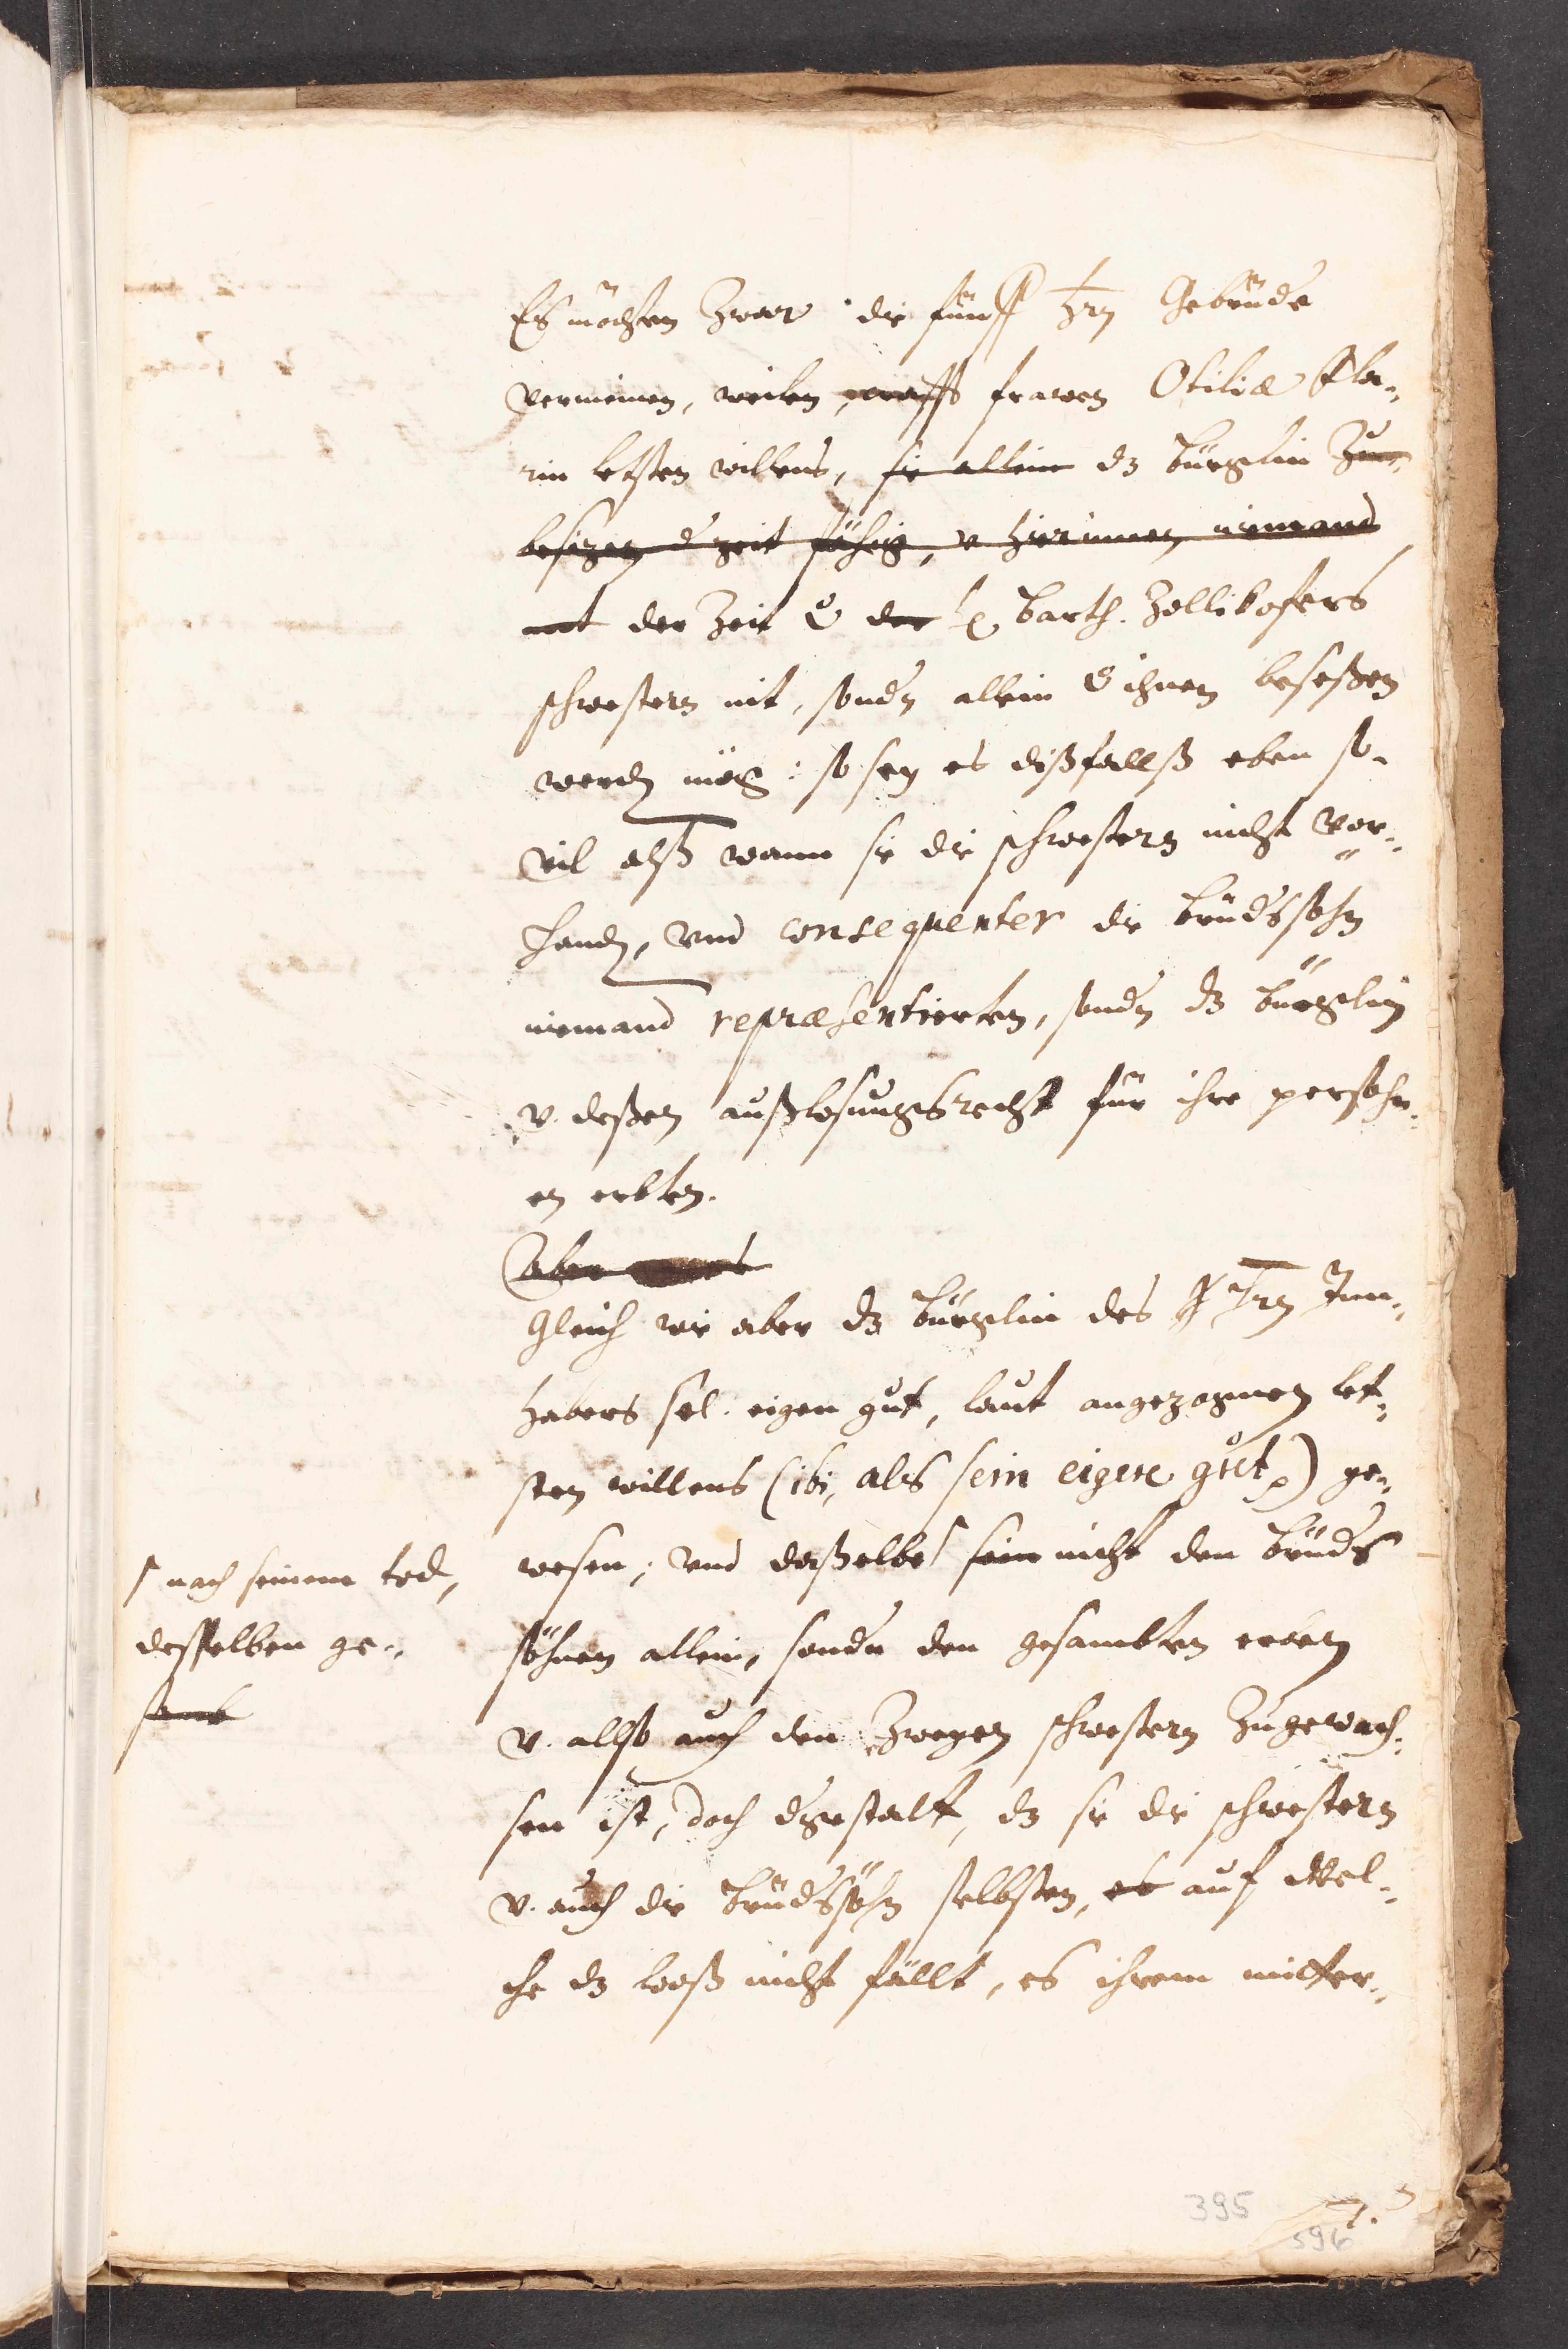 Es möchten zwar die fünff Hrn Gebrüde
vermeinen, weilen, krafft frawen Otiliæ Fla-
rin letsten willens, sie allein dz Bürglin zu
besizen d zeit fähig, v. hierinnen niemand
mt der Zeit v der H. Barth. Zollikofers
schwestern nit, sondn allein v ihnen beseßen
werdn mög: so sey es dißfallß eben so-
vil alß wann sie die schwestern nicht vor-
handn, vnd consequenter die brudssöhn
niemand repræsentierten, sondn dz bürglin
v. deßen außlosungsrecht für ihre persohn-
en erbten.
Aber
Gleich wie aber dz bürglin des Hrn Jnn-
habers sel. eigen gut, laut angezognen let-
sten willens (ibi, als sein eigen gůt) ge-
wesen; vnd daßelbe sein nicht den brudS
söhnen allein, sondn den gesambten erben
v. allso auch den zweyen schwestern zugewach-
sen ist, doch dgestalt, dz sie die schwestern
v. auch die brudssöhn selbsten, es auf wel-
che dz looß nicht fällt, es ihrem miter-
nach seinem tod,
desselben ge-
samb
395
7.
396